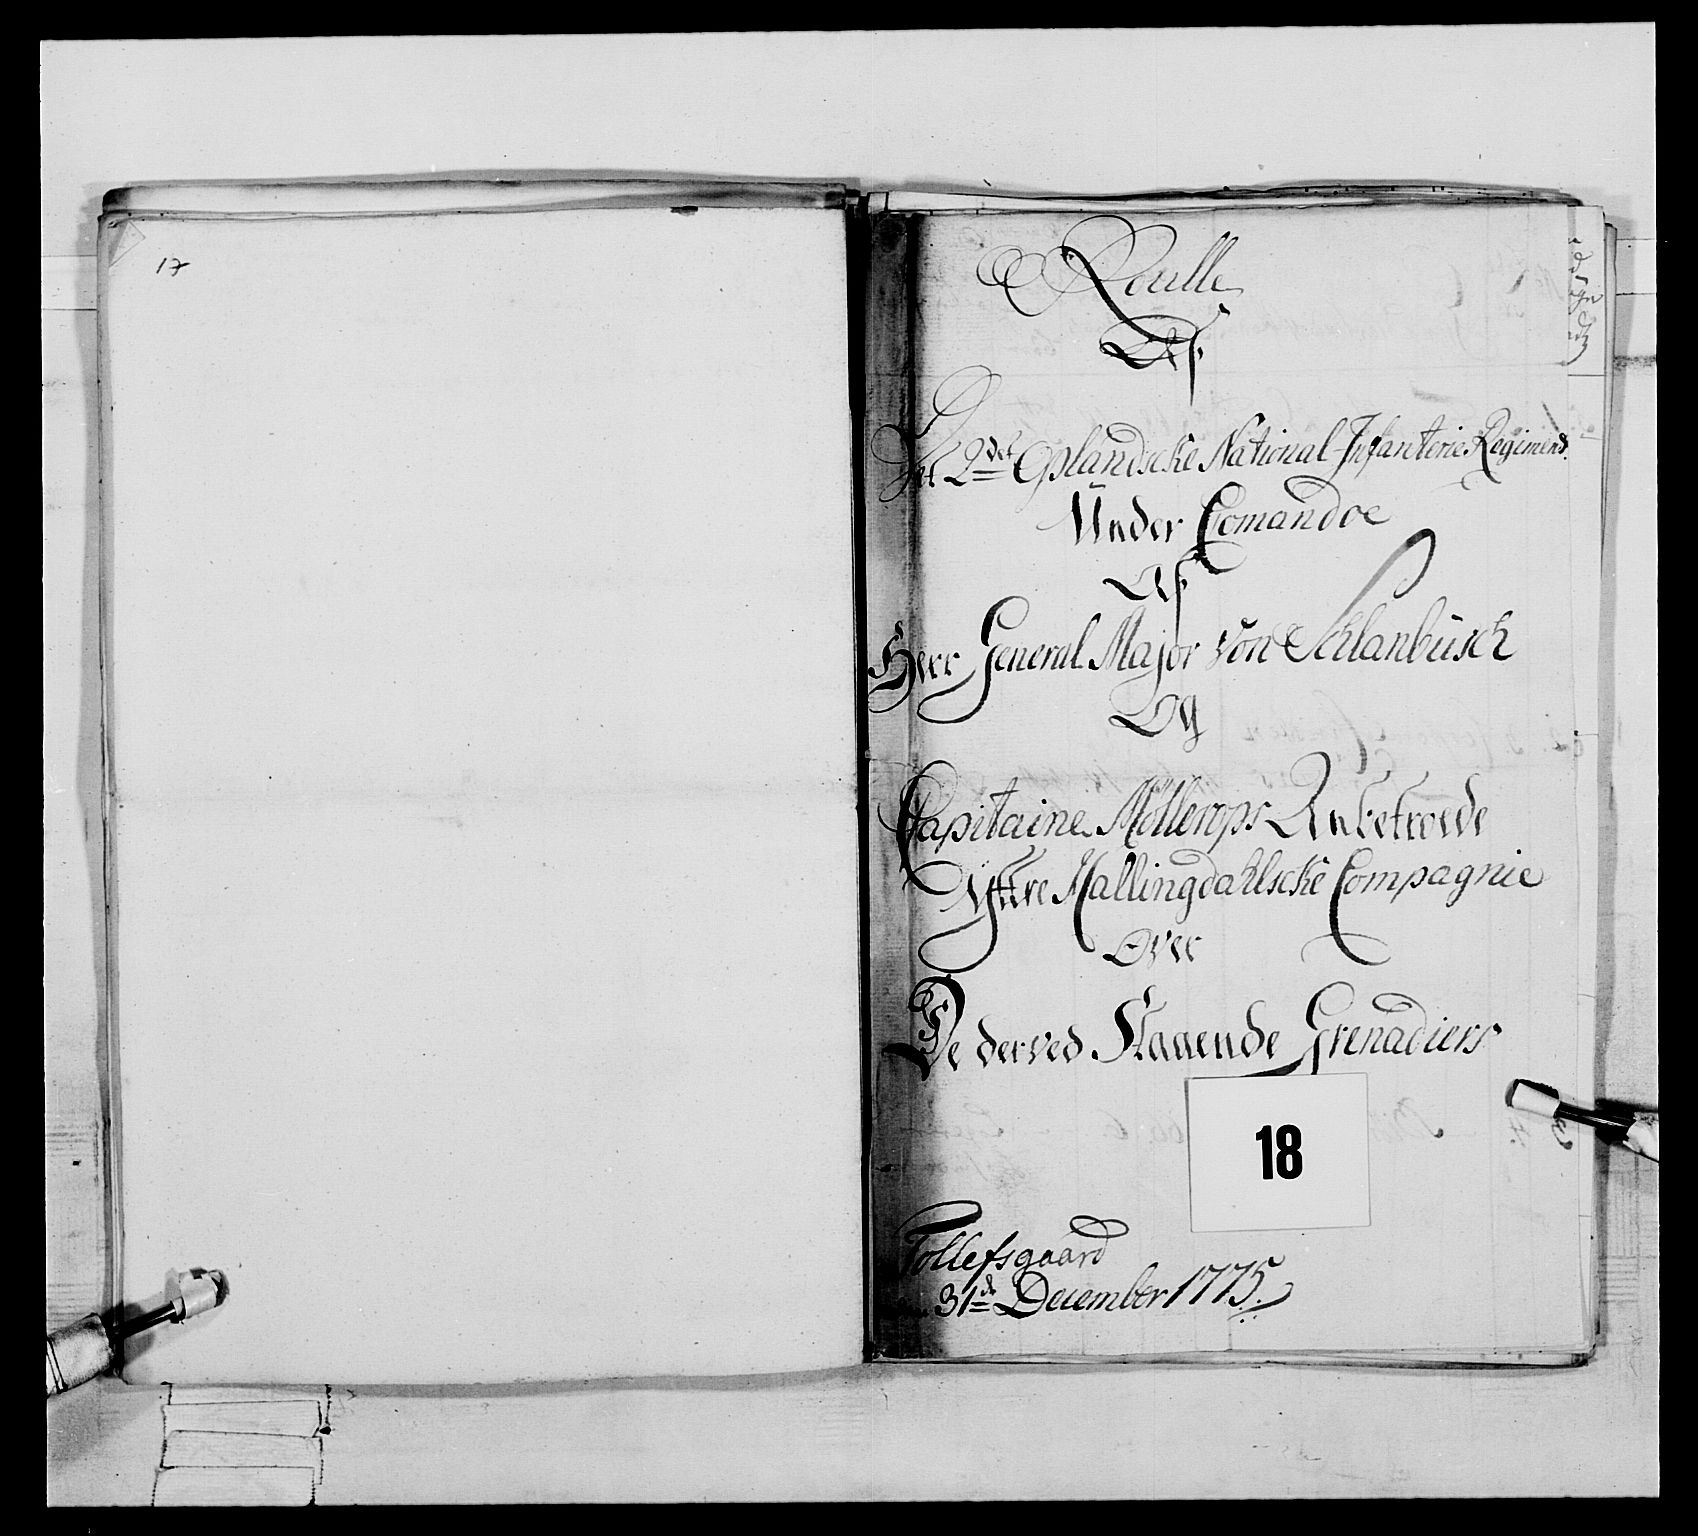 17
Roulle
Af
Det 2det Oplandscke National-Infanterie Regiment
Under Comandoe
Af
Herr General Major von Schlanbusch
Og
Capitaine Möllerops Anbetroede
Yttre Hallingdahlscke Compagnie
Over
De derved Staaende Grenadiers
18
Tollefsgaard
31de December 1775